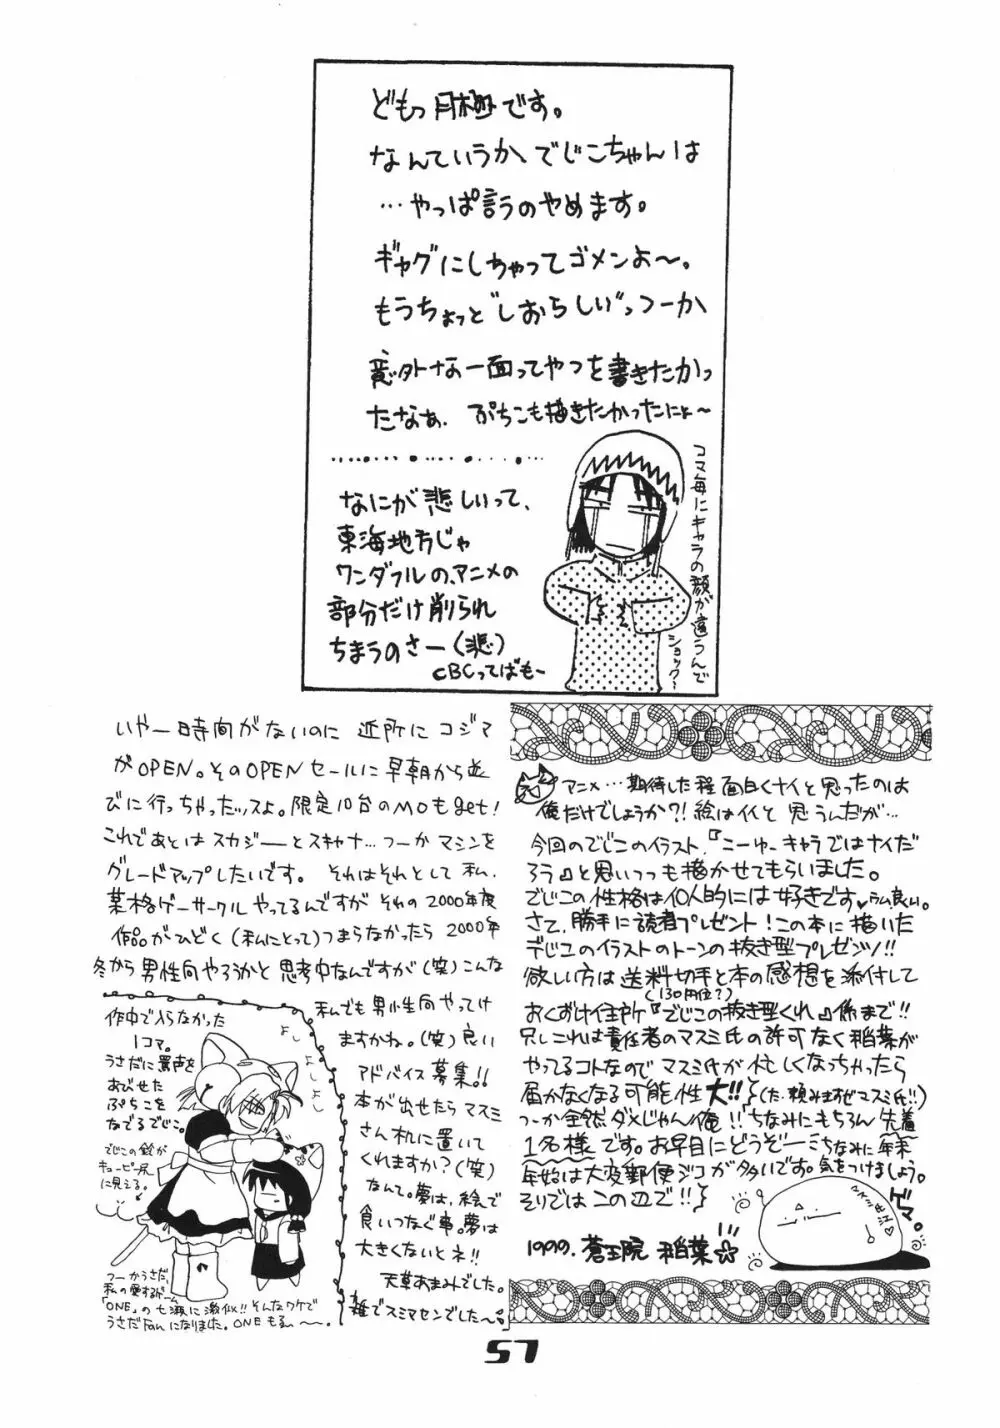 どもっ月極です。
なんていうか、でじこちゃんは
…やっぱ言うのやめます。
ギャグにしちゃってゴメンよ〜。
もうちょっと"しおらしい"っつーか
意外な一面ってやつを書きたかっ
たなぁ、ぷちこも描きたかったにょ〜
なにが悲しいって、
東海地方じゃ
ワンダフルの、アニメの
部分だけ削られ
ちまうのさー(悲)
CBCってばもー
コマ毎にキャラの顔が違うんで
ショック?
いやー時間がないのに 近所に コジマ
がOPEN。そのOPENセールに早朝から並
びに行っちゃだッスよ。限定10台のMOもget!
これであとは スカジーとスキャナ…つーか マシンを
グレードアップしたいです。 それはそれとして 私、
葉格ゲーサークル やってるんですが その 2000年度
作品がひどく(私にとって)つまらなかったら 2000年
冬から 男性向やろうかと 思考中なんですが(笑)こんな
私でも男性向やってけ
ますかね。(笑)良い
アドバイス募集!!
本が出せたらマスミ
さん机に置いて
くれますか?(笑)
なんて。夢は、絵で
食いつなぐ事。夢は
大きくないとネ!!
天草あまみでした。
雑でスミマセンでした〜。
作中で入らなかった
1コマ。
うさだに罵声を
あびせた
ぷちこを
なでるでじこ。
よしよし
よしよし
でじこの鈴が
キューピー尻
に見える。
つーかうさだ、
私の愛するゲーム
「ONE」の七瀬に激似!!そんなワケで
うさだFanになりました。ONEもえ〜〜。
アニメ…期待した程面白くナイと思ったのは
俺だけでしょうか?!絵はイイと思うんだが…
今回のでじこのイラスト、『こーゆーキャラではナイだ
ろう』と思いつつも描かせてもらいました。
でじこの性格は個人的には好きです♥ラム良い。
さて、勝手に読者プレゼント!この本に描いた
デジコのイラストのトーンの抜き型プレゼンツ!!
欲しい方は送料切手と本の感想を添付して
(130円位?)
おくずけ住所『でじこの抜き型くれ』係まで!!
兄しこれは責任者のマスミ氏の許可なく稲葉が
やってるコトなのでマスミ氏が忙しくなっちゃったら
届かなくなる可能性大!!(た、頼みますぜマスミ氏!!)
つーか全然ダメじゃん俺!!ちなみにもちろん先着
1名様です。お早目にどうぞーちなみに年末
年始は大変郵便ジコが多いです。気をつけましょう。
そりではこの辺で!!
ゲマ。
1999. 蒼王院 稲葉
57